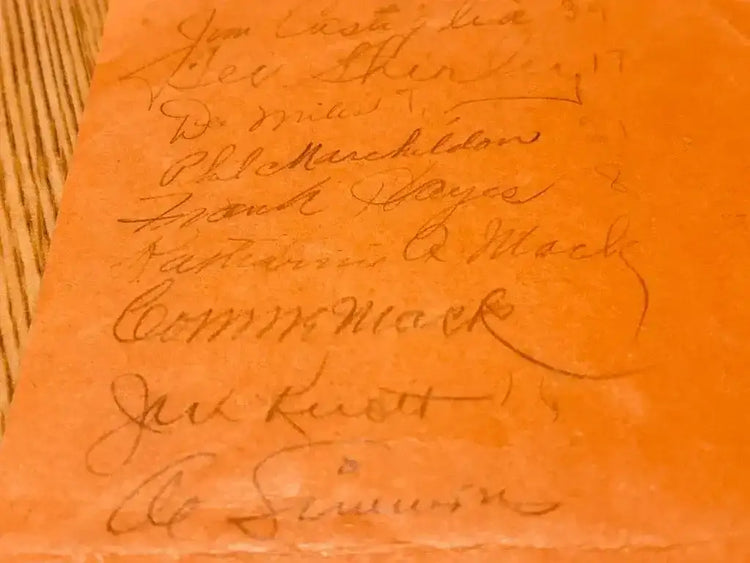 Jim Castiglia 39
Tex Shirley 17
Dee Miles 7
Phil Marchildon
Frank Hayes 8
Katharine A Mack
Connie Mack
Jack Knott
Al Simmons